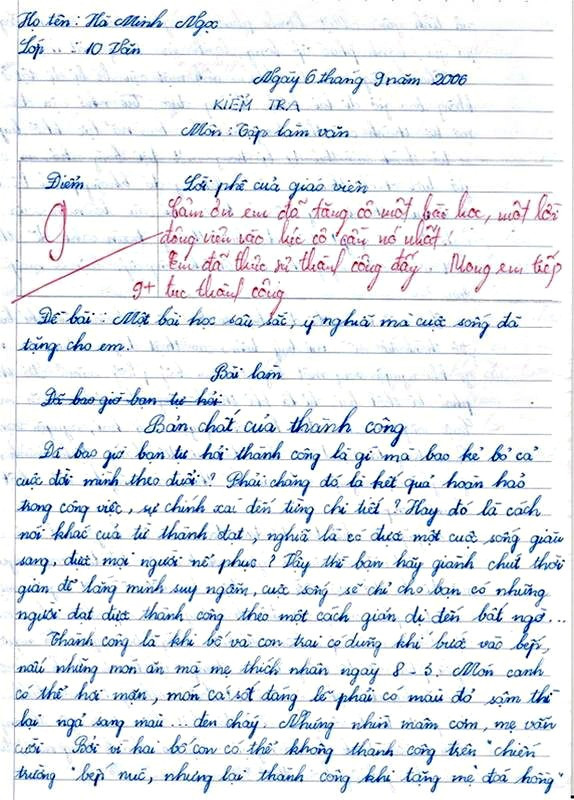 Họ tên : Hà Minh Ngọc
Lớp : 10 Văn
Ngày 6 tháng 9 năm 2006
KIỂM TRA
Môn : Tập làm văn
Điểm
Lời phê của giáo viên
9
Cảm ơn em đã tặng cô một bài học, một lời
động viên vào lúc cô cần nó nhất !
Em đã thực sự thành công đấy. Mong em tiếp
9+ tục thành công
Đề bài : Một bài học sâu sắc, ý nghĩa mà cuộc sống đã
tặng cho em.
Bài làm
Đã bao giờ bạn tự hỏi
Bản chất của thành công
Đã bao giờ bạn tự hỏi thành công là gì mà bao kẻ bỏ cả
cuộc đời mình theo đuổi ? Phải chăng đó là kết quả hoàn hảo
trong công việc, sự chính xác đến từng chi tiết ? Hay đó là cách
nói khác của từ thành đạt, nghĩa là có được một cuộc sống giàu
sang, được mọi người nể phục ? Vậy thì bạn hãy giành chút thời
gian để lặng mình suy ngẫm, cuộc sống sẽ chỉ cho bạn có những
người đạt được thành công theo một cách giản dị đến bất ngờ...
Thành công là khi bố và con trai có dũng khí bước vào bếp,
nấu những món ăn mà mẹ thích nhân ngày 8 - 3. Món canh
có thể hơi mặn, món cá sốt đáng lẽ phải có màu đỏ sậm thì
lại ngả sang màu... đen cháy. Nhưng nhìn mâm cơm, mẹ vẫn
cười. Bởi vì hai bố con có thể không thành công trên "chiến
trường" bếp núc, nhưng lại thành công khi tặng mẹ "đoá hồng"